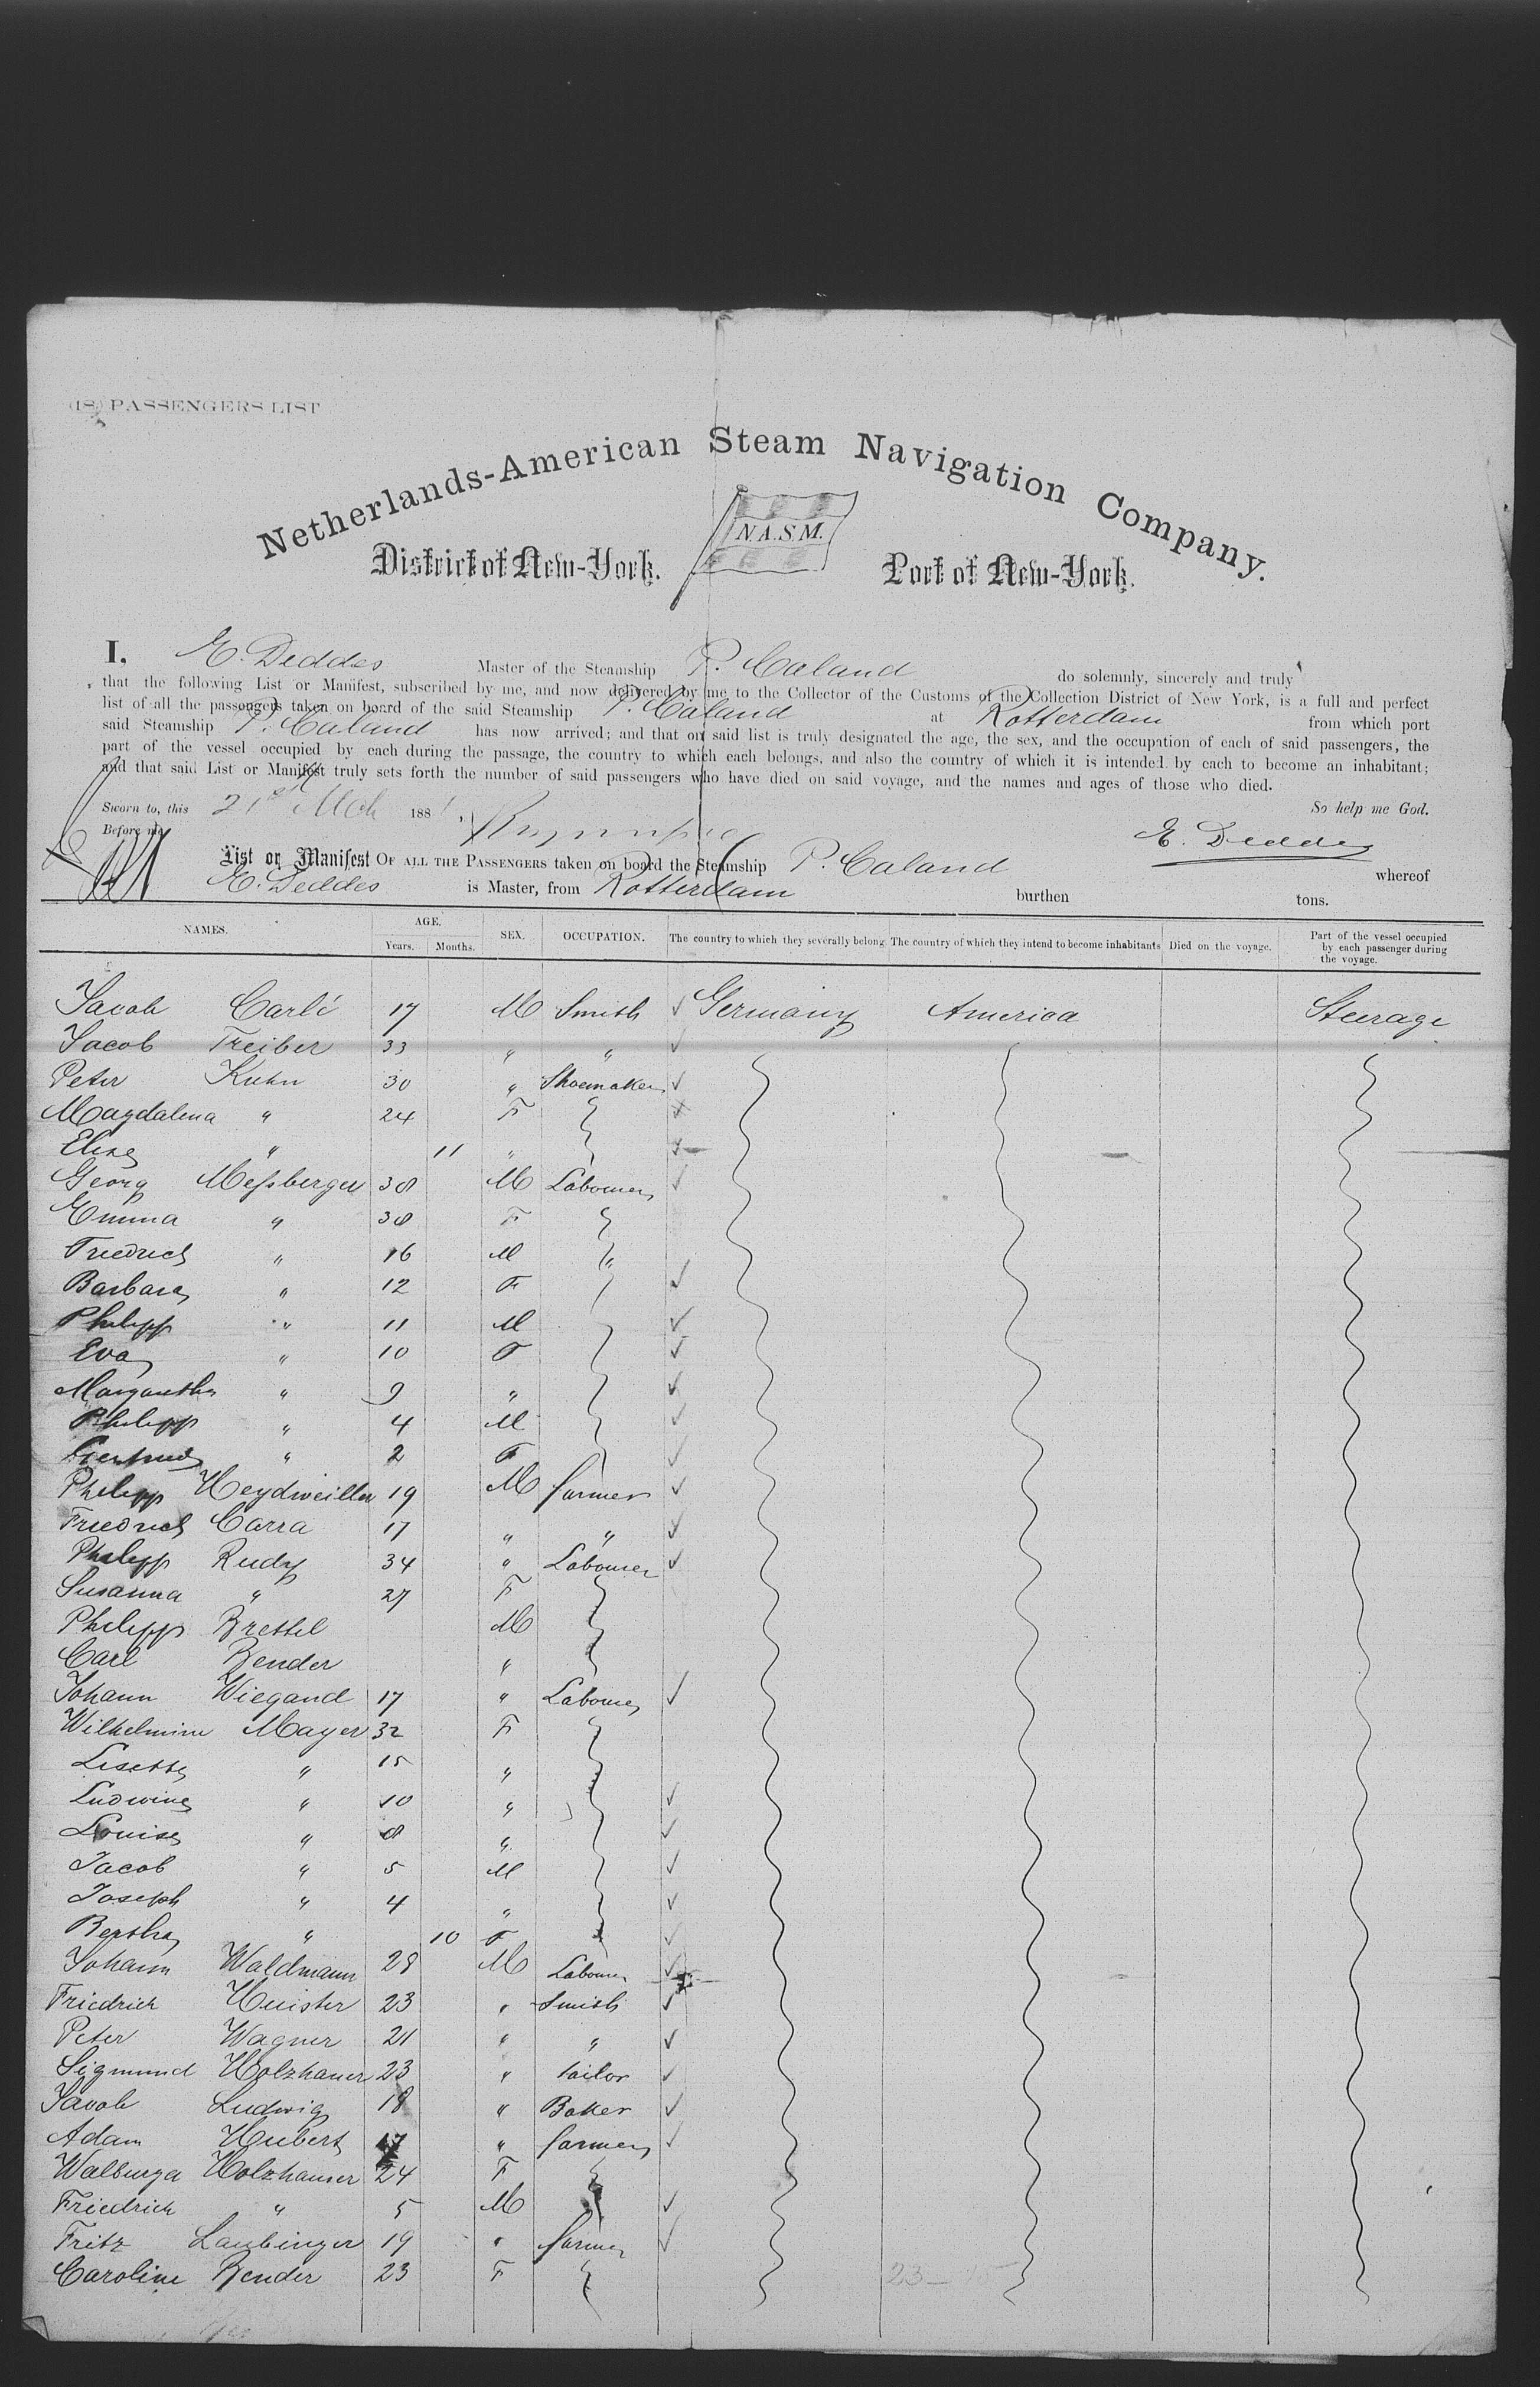 (18) PASSENGERS LIST
Netherlands-American Steam Navigation Company.
N.A.S.M.
District of New-York. Port of New-York.
I, E. Deddes Master of the Steamship P. Caland do solemnly, sincerely and truly
that the following List or Manifest, subscribed by me, and now delivered by me to the Collector of the Customs of the Collection District of New York, is a full and perfect
list of all the passengers taken on board of the said Steamship P. Caland at Rotterdam from which port
said Steamship P. Caland has now arrived; and that on said list is truly designated the age, the sex, and the occupation of each of said passengers, the
part of the vessel occupied by each during the passage, the country to which each belongs, and also the country of which it is intended by each to become an inhabitant;
and that said List or Manifest truly sets forth the number of said passengers who have died on said voyage, and the names and ages of those who died.
Sworn to, this 21st Mch 1881, So help me God.
Before me E. Deddes
List or Manifest OF ALL THE PASSENGERS taken on board the Steamship P. Caland whereof
E. Deddes is Master, from Rotterdam burthen tons.
NAMES. AGE. Years. Months. SEX. OCCUPATION. The country to which they severally belong The country of which they intend to become inhabitants Died on the voyage. Part of the vessel occupied by each passenger during the voyage.
Jacob Carlé 17 M Smith Germany America Steerage
Jacob Treiber 33 " "
Peter Kuhn 30 " Shoemaker
Magdalena " 24 F
Elise " 11 "
Georg Meßberger 38 M Labourer
Emma " 38 F
Friedrich " 16 M "
Barbara " 12 F
Philipp " 11 M
Eva " 10 F
Margaretha " 9 "
Philipp " 4 M
Gertrud " 2 F
Philipp Heydweiller 19 M farmer
Friedrich Carra 17 " "
Philipp Rudy 34 " Labourer
Susanna " 27 F
Philipp Brettel M
Carl Bender "
Johann Wiegand 17 " Labourer
Wilhelmine Mayer 32 F
Lisette " 15 "
Ludwine " 10 "
Louise " 8 "
Jacob " 5 M
Joseph " 4 "
Bertha " 10 F
Johann Waldmann 28 M Labourer
Friedrich Heister 23 " Smith
Peter Wagner 21 " "
Sigmund Holzhauer 23 " Tailor
Jacob Ludwig 18 " Baker
Adam Hubert 17 " farmer
Walburga Holzhauser 24 F
Friedrich " 5 M
Fritz Laubinger 19 " farmer
Caroline Bender 23 F
23